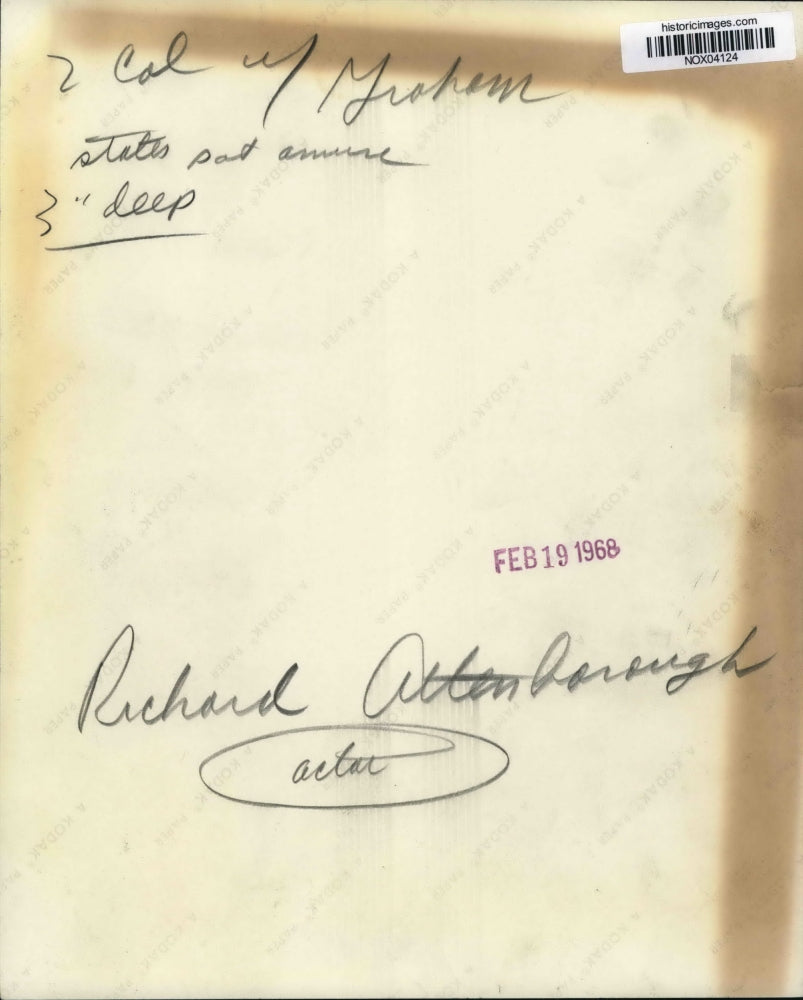 historicimages.com
NOX04124
2 Col w/ Graham
states sat amuse
3" deep
FEB 19 1968
Richard Attenborough
actor
A KODAK® PAPER